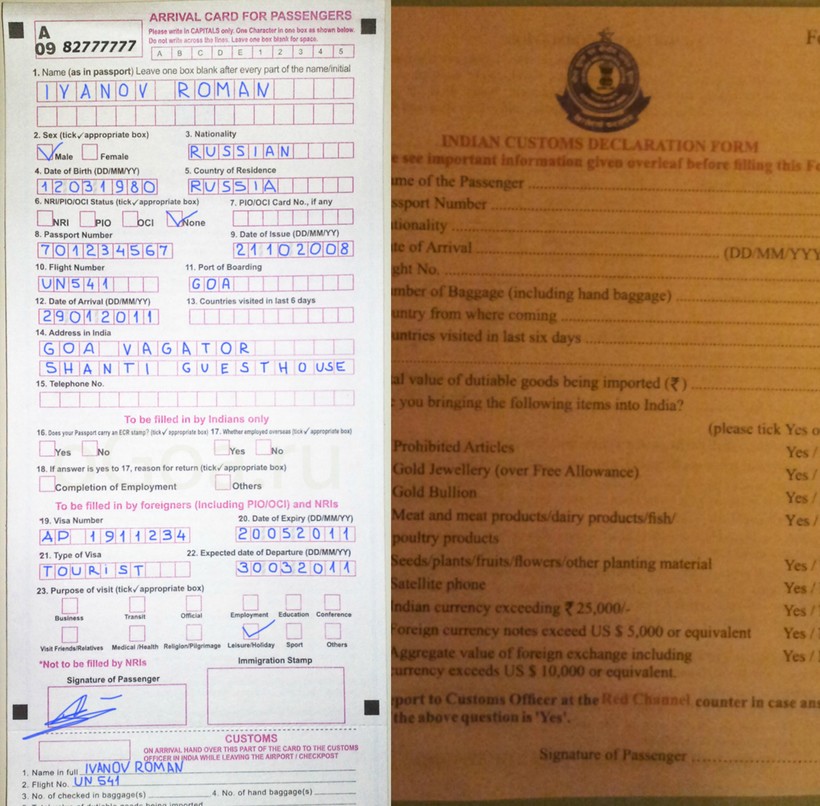 ARRIVAL CARD FOR PASSENGERS
A
09 82777777
Please write in CAPITALS only. One Character in one box as shown below.
Do not write across the lines. Leave one box blank for space.
A B C D E 1 2 3 4 5
1. Name (as in passport) Leave one box blank after every part of the name/initial
IVANOV ROMAN
2. Sex (tick✓appropriate box) 3. Nationality
Male Female RUSSIAN
4. Date of Birth (DD/MM/YY) 5. Country of Residence
12031980 RUSSIA
6. NRI/PIO/OCI Status (tick✓appropriate box) 7. PIO/OCI Card No., if any
NRI PIO OCI None
8. Passport Number 9. Date of Issue (DD/MM/YY)
701234567 21102008
10. Flight Number 11. Port of Boarding
UN541 GOA
12. Date of Arrival (DD/MM/YY) 13. Countries visited in last 6 days
29012011
14. Address in India
GOA VAGATOR
SHANTI GUESTHOUSE
15. Telephone No.
To be filled in by Indians only
16. Does your Passport carry an ECR stamp? (tick✓appropriate box) 17. Whether employed overseas (tick✓appropriate box)
Yes No Yes No
18. If answer is yes to 17, reason for return (tick✓appropriate box)
Completion of Employment Others
To be filled in by foreigners (Including PIO/OCI) and NRIs
*19. Visa Number *20. Date of Expiry (DD/MM/YY)
AP 1911234 20052011
*21. Type of Visa 22. Expected date of Departure (DD/MM/YY)
TOURIST 30032011
23. Purpose of visit (tick✓appropriate box)
Business Transit Official Employment Education Conference
Visit Friends/Relatives Medical /Health Religion/Pilgrimage Leisure/Holiday Sport Others
*Not to be filled by NRIs
Signature of Passenger Immigration Stamp
CUSTOMS
ON ARRIVAL HAND OVER THIS PART OF THE CARD TO THE CUSTOMS
OFFICER IN INDIA WHILE LEAVING THE AIRPORT / CHECKPOST
1. Name in full IVANOV ROMAN
2. Flight No. UN 541
3. No. of checked in baggage(s) 4. No. of hand baggage(s)
INDIAN CUSTOMS DECLARATION FORM
see important information given overleaf before filling this Fo
me of the Passenger
ssport Number
tionality
te of Arrival (DD/MM/YYY
ght No.
mber of Baggage (including hand baggage)
untry from where coming
untries visited in last six days
al value of dutiable goods being imported (₹)
you bringing the following items into India?
(please tick Yes o
Prohibited Articles Yes /
Gold Jewellery (over Free Allowance) Yes /
Gold Bullion Yes /
Meat and meat products/dairy products/fish/ Yes /
poultry products
Seeds/plants/fruits/flowers/other planting material Yes /
Satellite phone Yes /
Indian currency exceeding ₹ 25,000/- Yes /
Foreign currency notes exceed US $ 5,000 or equivalent Yes /
Aggregate value of foreign exchange including Yes /
currency exceeds US $ 10,000 or equivalent.
port to Customs Officer at the Red Channel counter in case ans
the above question is 'Yes'.
Signature of Passenger